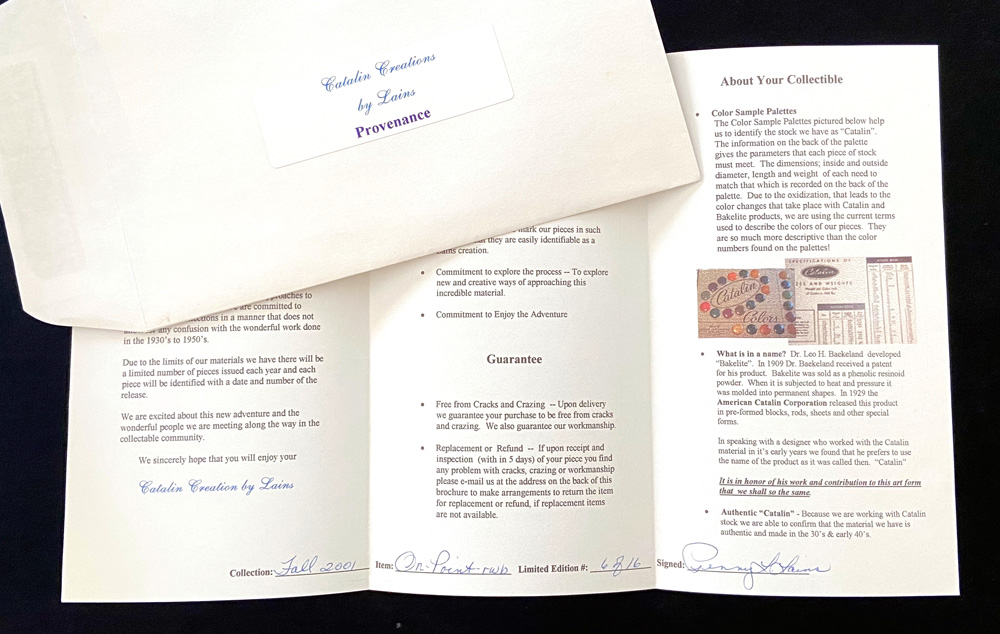 Catalin Creations
by Lains
Provenance
are committed to
in a manner that does not
any confusion with the wonderful work done
in the 1930's to 1950's.
Due to the limits of our materials we have there will be
a limited number of pieces issued each year and each
piece will be identified with a date and number of the
release.
We are excited about this new adventure and the
wonderful people we are meeting along the way in the
collectable community.
We sincerely hope that you will enjoy your
Catalin Creation by Lains
Collection: Fall 2001
mark our pieces in such
they are easily identifiable as a
creation.
• Commitment to explore the process -- To explore
new and creative ways of approaching this
incredible material.
• Commitment to Enjoy the Adventure
Guarantee
• Free from Cracks and Crazing -- Upon delivery
we guarantee your purchase to be free from cracks
and crazing. We also guarantee our workmanship.
• Replacement or Refund -- If upon receipt and
inspection (with in 5 days) of your piece you find
any problem with cracks, crazing or workmanship
please e-mail us at the address on the back of this
brochure to make arrangements to return the item
for replacement or refund, if replacement items
are not available.
Item: On-Point-rwb Limited Edition #: 6 of 16
About Your Collectible
• Color Sample Palettes
The Color Sample Palettes pictured below help
us to identify the stock we have as "Catalin".
The information on the back of the palette
gives the parameters that each piece of stock
must meet. The dimensions; inside and outside
diameter, length and weight of each need to
match that which is recorded on the back of the
palette. Due to the oxidization, that leads to the
color changes that take place with Catalin and
Bakelite products, we are using the current terms
used to describe the colors of our pieces. They
are so much more descriptive than the color
numbers found on the palettes!
SPECIFICATIONS OF
Catalin
SIZES AND WEIGHTS
Catalin
Colors
• What is in a name? Dr. Leo H. Baekeland developed
"Bakelite". In 1909 Dr. Baekeland received a patent
for his product. Bakelite was sold as a phenolic resinoid
powder. When it is subjected to heat and pressure it
was molded into permanent shapes. In 1929 the
American Catalin Corporation released this product
in pre-formed blocks, rods, sheets and other special
forms.
In speaking with a designer who worked with the Catalin
material in it's early years we found that he prefers to use
the name of the product as it was called then. "Catalin"
It is in honor of his work and contribution to this art form
that we shall so the same.
• Authentic "Catalin" - Because we are working with Catalin
stock we are able to confirm that the material we have is
authentic and made in the 30's & early 40's.
Signed: Penny L Lains